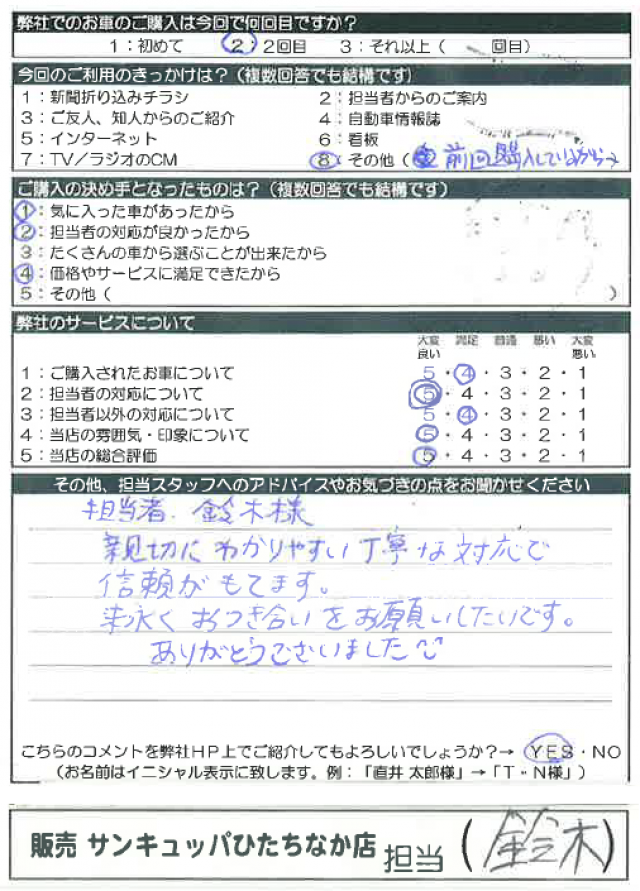 弊社でのお車のご購入は今回で何回目ですか？
1：初めて 2：2回目 3：それ以上（ 回目）
今回のご利用のきっかけは？（複数回答でも結構です）
1：新聞折り込みチラシ 2：担当者からのご案内
3：ご友人、知人からのご紹介 4：自動車情報誌
5：インターネット 6：看板
7：TV／ラジオのCM 8：その他（ 前回購入していながら）
ご購入の決め手となったものは？（複数回答でも結構です）
1：気に入った車があったから
2：担当者の対応が良かったから
3：たくさんの車から選ぶことが出来たから
4：価格やサービスに満足できたから
5：その他（ ）
弊社のサービスについて
大変良い 満足 普通 悪い 大変悪い
1：ご購入されたお車について 5・4・3・2・1
2：担当者の対応について 5・4・3・2・1
3：担当者以外の対応について 5・4・3・2・1
4：当店の雰囲気・印象について 5・4・3・2・1
5：当店の総合評価 5・4・3・2・1
その他、担当スタッフへのアドバイスやお気づきの点をお聞かせください
担当者 鈴木様
親切にわかりやすい丁寧な対応で
信頼がもてます。
末永くおつき合いをお願いしたいです。
ありがとうございました
こちらのコメントを弊社HP上でご紹介してもよろしいでしょうか？→ YES・NO
（お名前はイニシャル表示に致します。例：「直井 太郎様」→「T・N様」）
販売 サンキュッパひたちなか店 担当（鈴木）